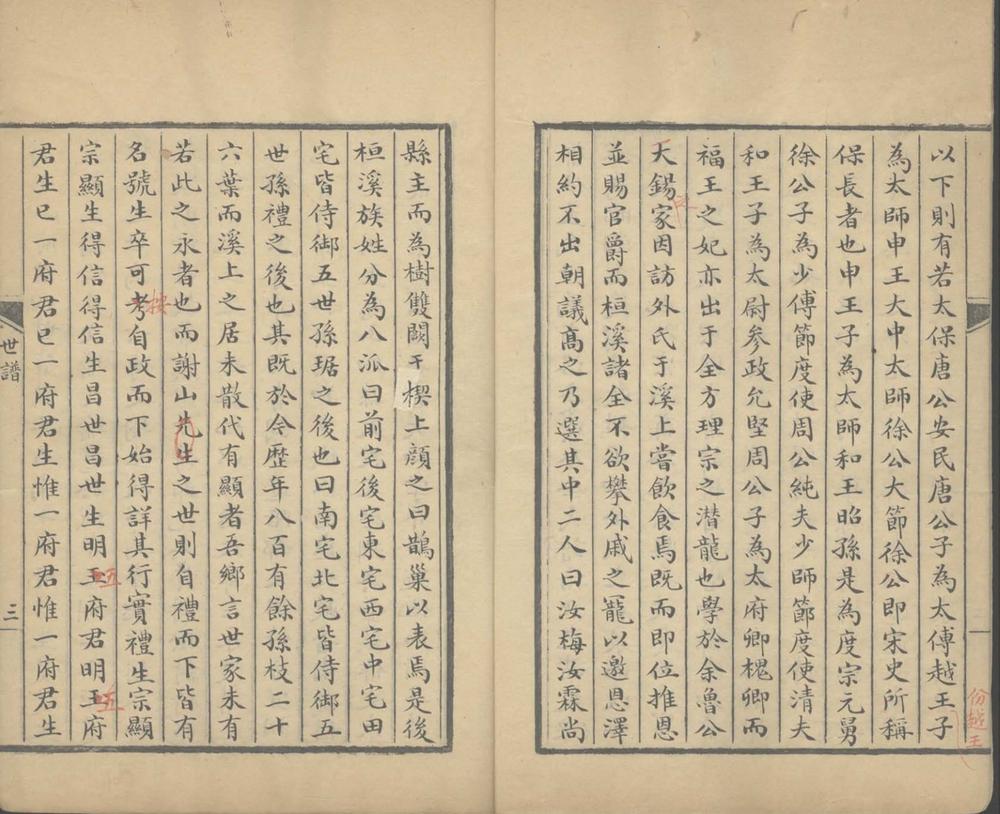 以下則有若太保唐公安民唐公子為太傅越王子
份越王
為太師申王大中太師徐公大節徐公即宋史所稱
保長者也申王子為太師和王昭孫是為度宗元舅
徐公子為少傅節度使周公純夫少師節度使清夫
和王子為太尉參政允堅周公子為太府卿槐卿而
福王之妃亦出于全方理宗之潛龍也學於余魯公
天錫家因訪外氏于溪上嘗飲食焉既而即位推恩
並賜官爵而桓溪諸全不欲攀外戚之寵以邀恩澤
相約不出朝議高之乃選其中二人曰汝梅汝霖尚
縣主而為樹雙闕于楔上顏之曰鵲巢以表焉是後
桓溪族姓分為八派曰前宅後宅東宅西宅中宅田
宅皆侍御五世孫琚之後也曰南宅北宅皆侍御五
世孫禮之後也其既於今歷年八百有餘孫枝二十
六葉而溪上之居未散代有顯者吾鄉言世家未有
若此之永者也而謝山先生之世則自禮而下皆有
名號生卒可考自政而下始得詳其行實禮生宗顯
按
宗顯生得信得信生昌世昌世生明王府君明王府
五
五
君生巳一府君巳一府君生惟一府君惟一府君生
世譜
三